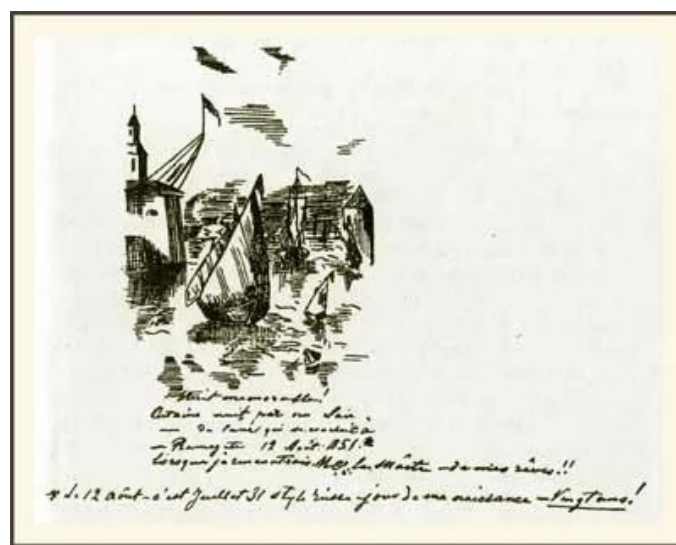 Nuit memorable!
Certaine nuit par un clair
de lune qui se couchait à
– Ramsgate 12 Août. 1851.*
lorsque je rencontrais le Maître – de mes rêves!!
* Le 12 Août – c'est Juillet 31 style russe – jour de ma naissance – Vingt ans!